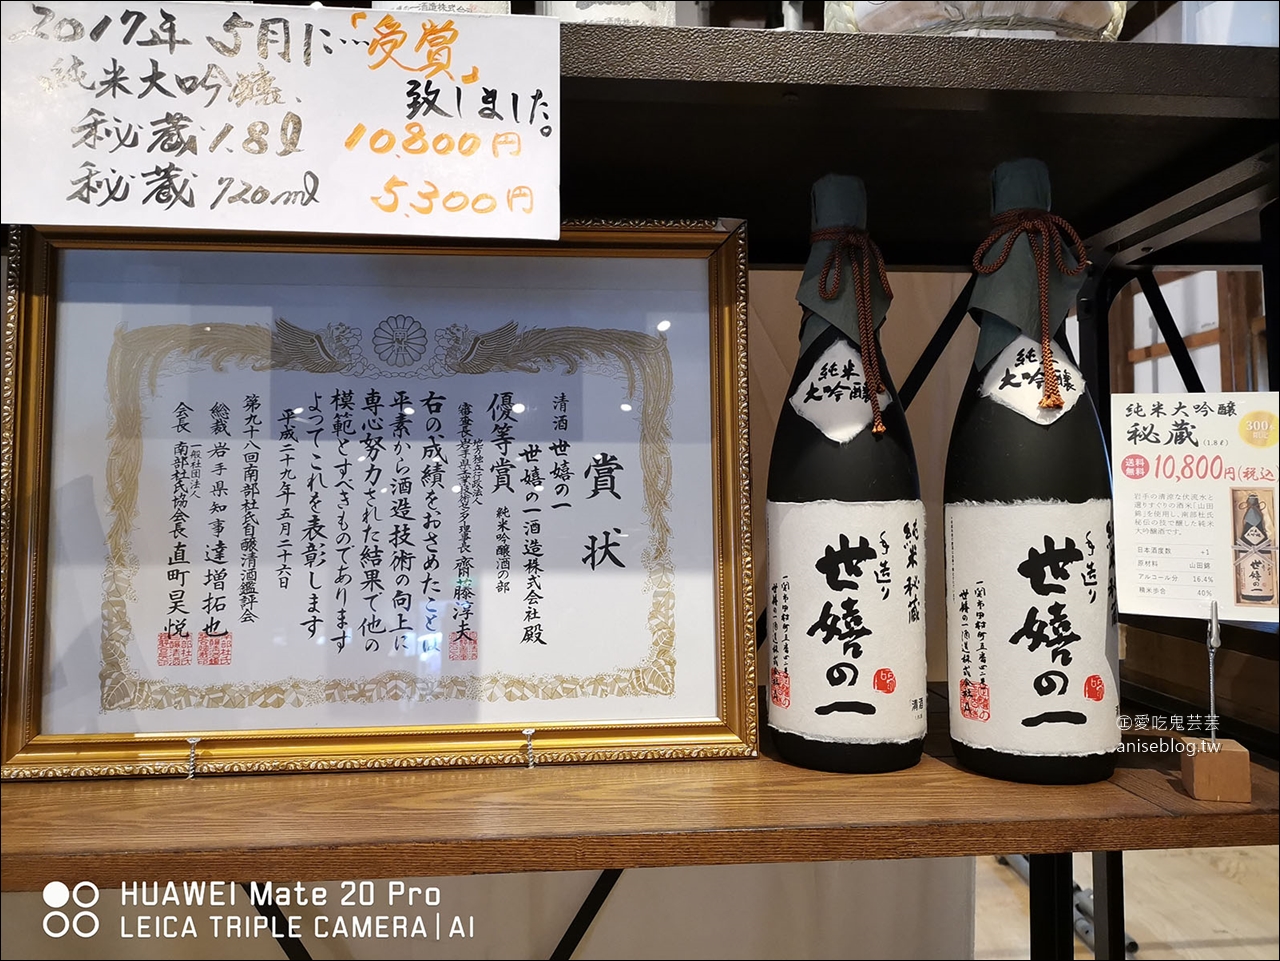 2017年 5月に…「受賞」
致しました。
純米大吟醸、
秘蔵 1.8ℓ 10,800円
秘蔵 720mℓ 5,300円
賞状
清酒 世嬉の一
世嬉の一酒造株式会社 殿
優等賞 純米吟醸酒の部
地方独立行政法人
審査長 岩手県工業技術センター理事長 齋藤淳夫
右の成績をおさめたことは
平素から酒造技術の向上に
専心努力された結果で他の
模範とすべきものであります
よってこれを表彰します
平成二十九年五月二十六日
第九十八回南部杜氏自醸清酒鑑評会
総裁 岩手県知事 達増拓也
一般社団法人
会長 南部杜氏協会会長 直町昊悦
純米
大吟醸
純米 秘蔵
手造り
世嬉の一
一関市田村町五番四二号
世嬉の一酒造株式会社
清酒
純米
大吟醸
純米 秘蔵
手造り
世嬉の一
一関市田村町五番四二号
世嬉の一酒造株式会社
純米大吟醸
秘蔵 (1.8ℓ)
300本
限定
送料
無料
10,800円(税込
岩手の清冽な伏流水と
選りすぐりの酒米「山田
錦」を使用し、南部杜氏
秘伝の技で醸した純米
大吟醸酒です。
日本酒度数 +1
原材料 山田錦
アルコール分 16.4%
精米歩合 40%
世嬉の一
㊣愛吃鬼芸芸
aniseblog.tw
HUAWEI Mate 20 Pro
LEICA TRIPLE CAMERA | AI